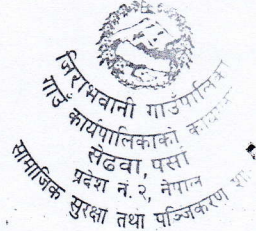 जिराभवानी गाउँपालिका
गाउँ कार्यपालिकाको कार्यालय
सेढवा, पर्सा
प्रदेश नं. २, नेपाल
सामाजिक सुरक्षा तथा पञ्जिकरण